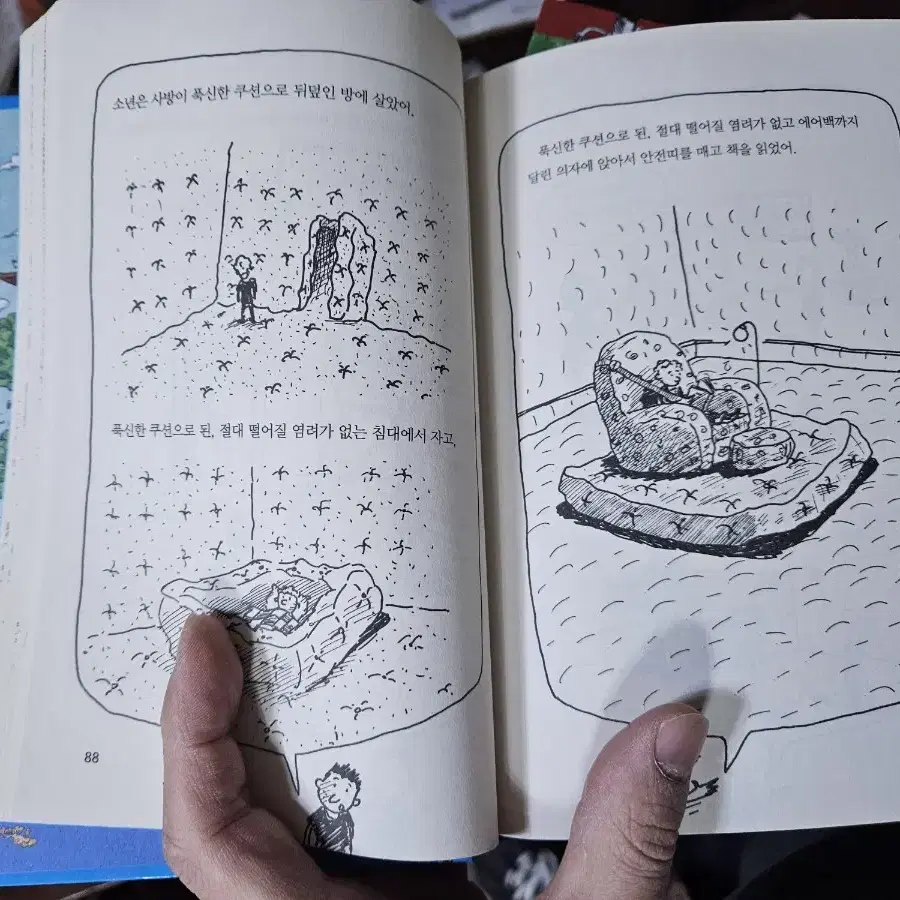 소년은 사방이 푹신한 쿠션으로 뒤덮인 방에 살았어.
푹신한 쿠션으로 된, 절대 떨어질 염려가 없는 침대에서 자고,
88
푹신한 쿠션으로 된, 절대 떨어질 염려가 없고 에어백까지
달린 의자에 앉아서 안전띠를 매고 책을 읽었어.